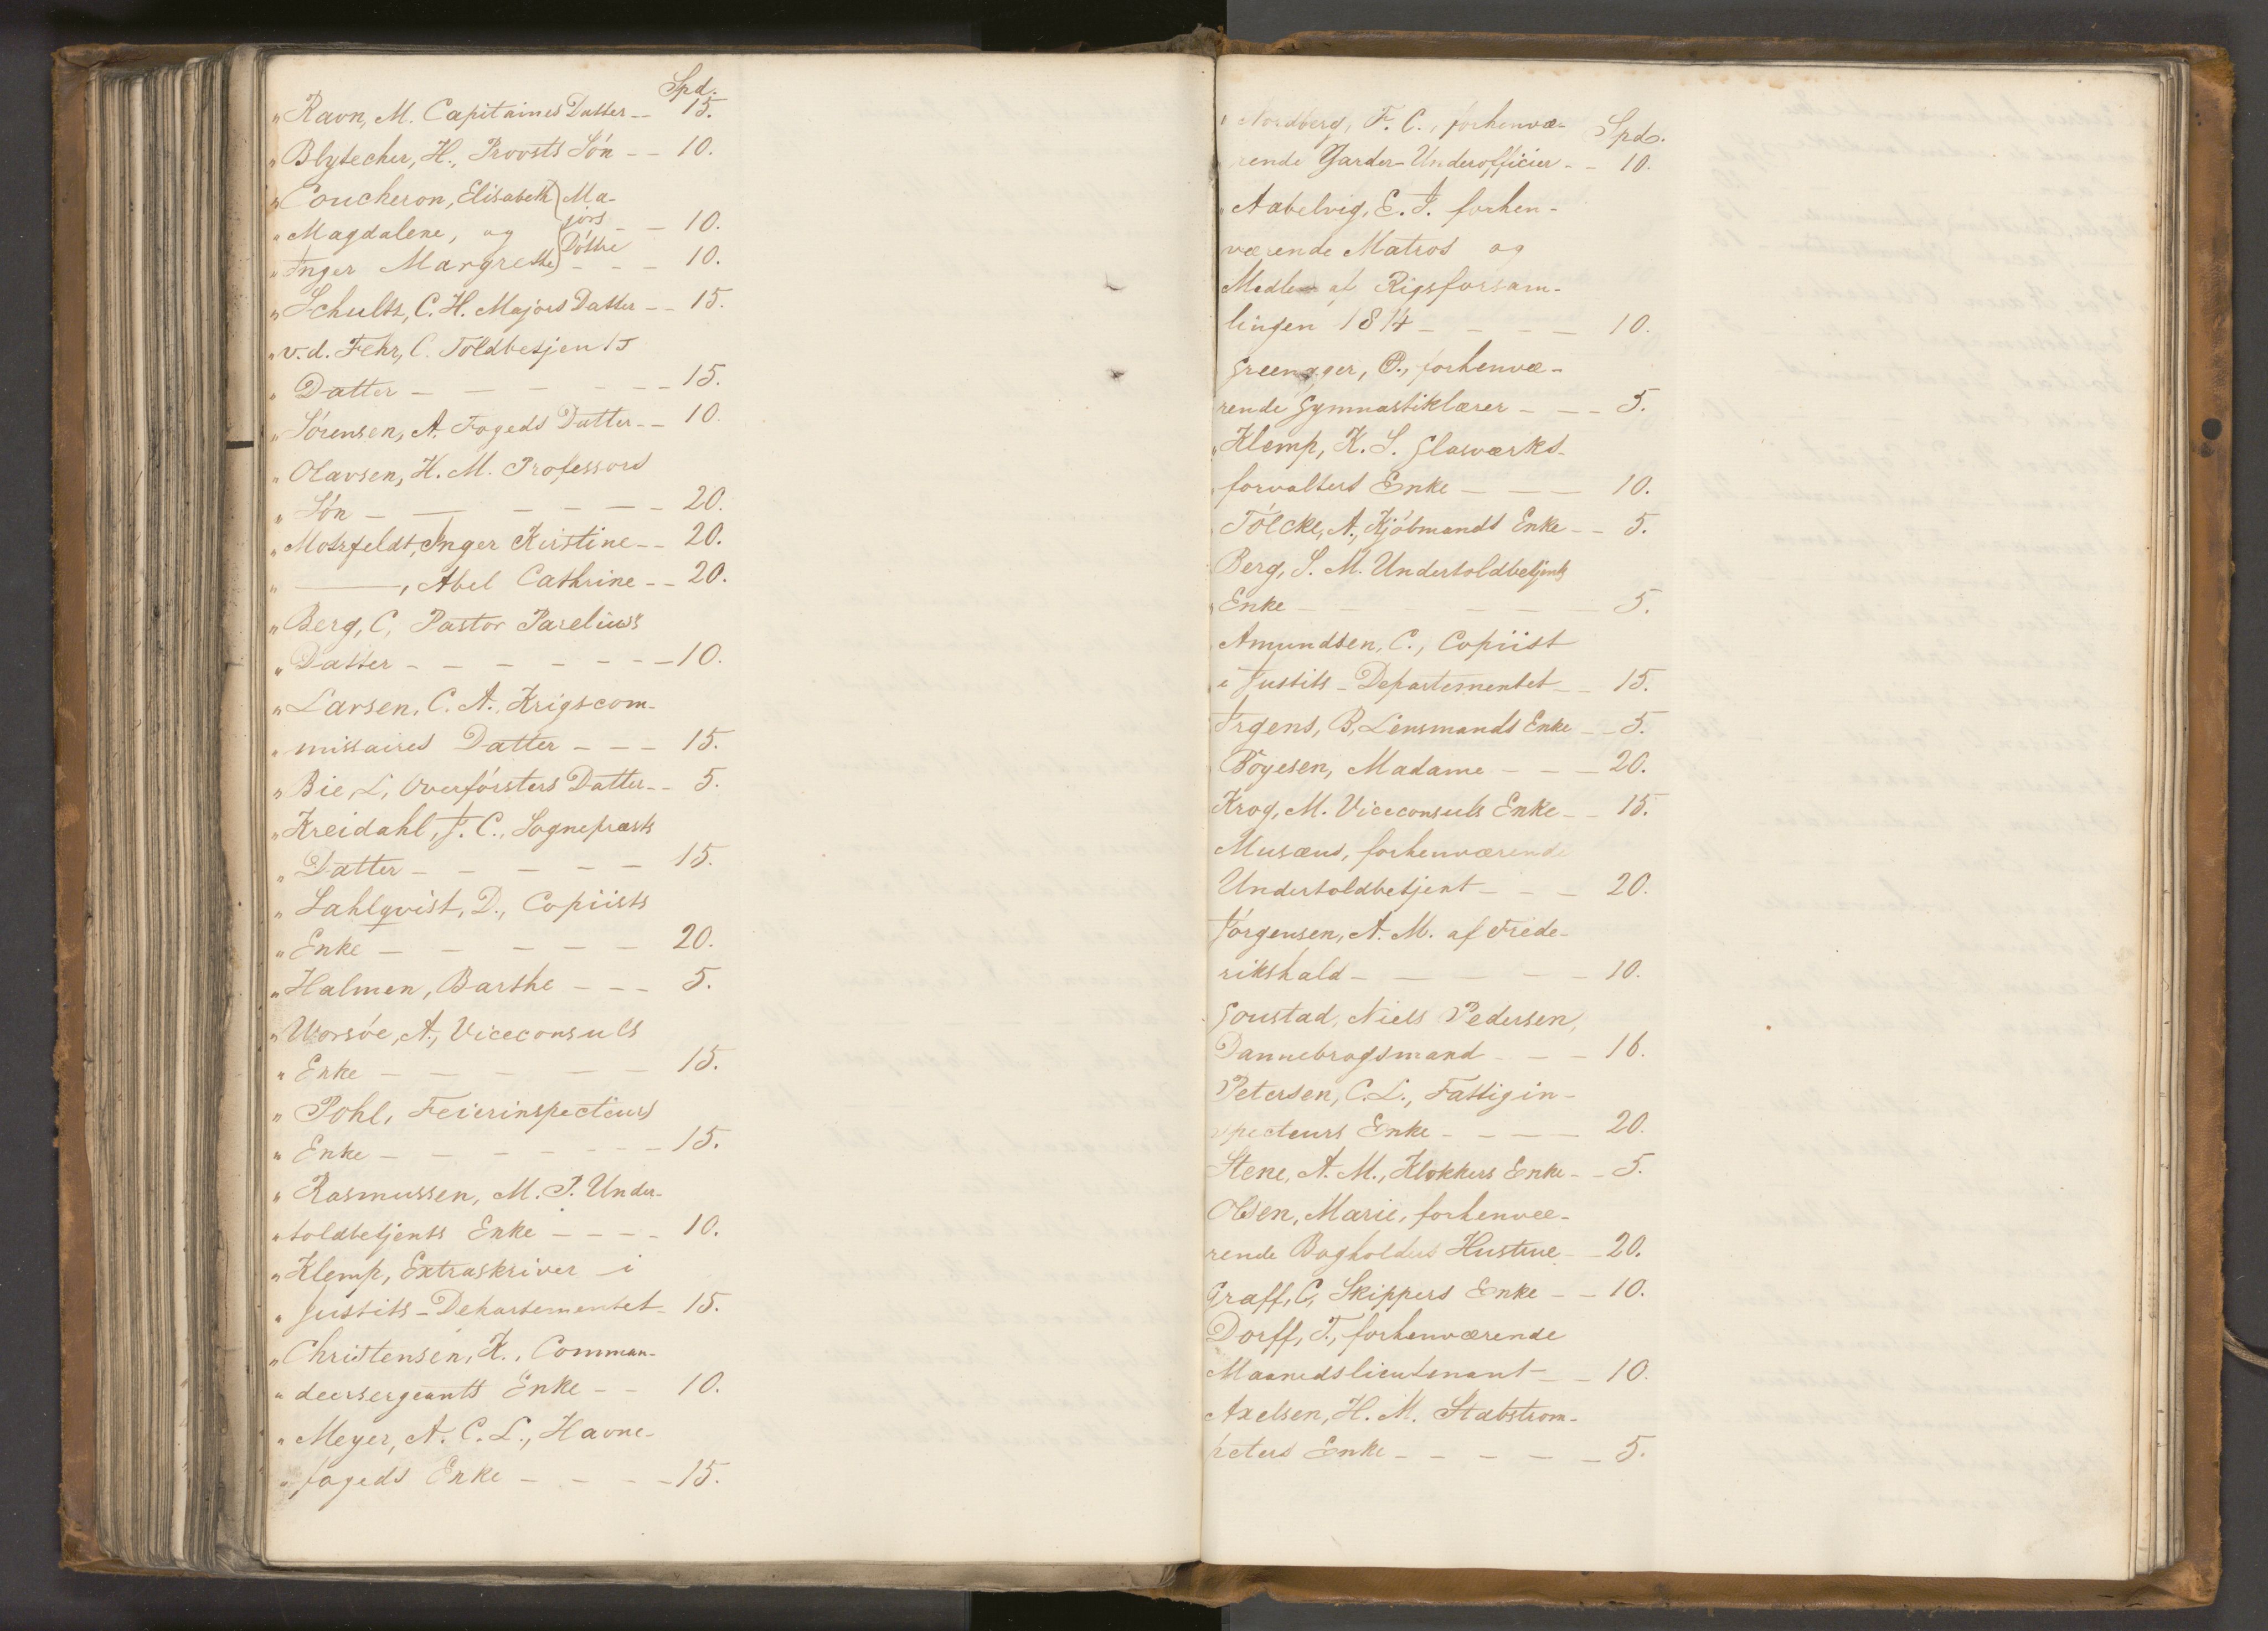 Spd.
" Ravn, M. Capitaines Datter -- 15.
" Blytecher, H., Provsts Són -- 10.
" Coucheron, Elisabeth } Ma-
" Magdalene, og } jors - - 10.
" Inger Margrethe } Döttre - - - 10.
" Schultz, C. H. Majors Datter -- 15.
" v. d. Fehr, C. Toldbetjents
" Datter - - - - - - 15.
" Sórensen, A. Fogeds Datter -- 10.
" Olavsen, H. M. Professors
" Són - - - - - - 20.
" Motzfeldt, Inger Kirstine -- 20.
" ———, Abel Cathrine -- 20.
" Berg, C, Pastor Parelius's
" Datter - - - - - - - 10.
" Larsen, C. A., Krigscom-
" missaires Datter - - - 15.
" Bie, L, Overfórsters Datter -- 5.
" Kreidahl, J. C., Sognepræsts
" Datter - - - - - 15.
" Sahlqvist, D., Copiists
" Enke - - - - - 20.
" Halmen, Barthe - - - 5.
" Worsóe, A., Viceconsuls
" Enke - - - - - 15.
" Pohl, Feierinspecteurs
" Enke - - - - - - 15.
" Rasmussen, M. P. Under-
" toldbetjents Enke - - - - 10.
" Klemp, Extraskriver i
" Justits-Departementet - 15.
" Christensen, K., Comman-
" deersergeants Enke - - 10.
" Meyer, A. C. L., Havne-
" fogeds Enke - - - - 15.
" Nordberg, F. C., forhenvæ- Spd.
rende Garder-Underofficier -- 10.
" Aabelvig, E. J. forhen-
værende Matros og
Medlem af Rigsforsam-
lingen 1814 - - - - 10.
Greenager, P., forhenvæ-
rende Gymnastiklærer - - - 5.
" Klemp, K. S. Glasværks-
forvalters Enke - - - 10.
Tólcke, A., Kjóbmands Enke -- 5.
Berg, S. M. Undertoldbetjents
" Enke - - - - - - 5.
Amundsen, C., Copiist
i Justits-Departementet -- 15.
Irgens, B, Lensmands Enke -- 5.
Bóyesen, Madame - - - 20.
Krog, M. Viceconsuls Enke -- 15.
Musæus, forhenværende
Undertoldbetjent - - - 20.
Jórgensen, A. M. af Frede-
rikshald - - - - - 10.
Goustad, Niels Pedersen,
Dannebrogsmand - - - 16.
Petersen, C. L., Fattigin-
specteurs Enke - - - - 20.
Stene, A. M., Klokkers Enke -- 5.
Olsen, Marie, forhenvæ-
rende Bogholders Hustrue -- 20.
Graff, C, Skippers Enke -- 10.
Dorff, T., forhenværende
Maanedslieutenant -- 10.
Axelsen, H. M. Stabstrom-
peters Enke - - - - - 5.